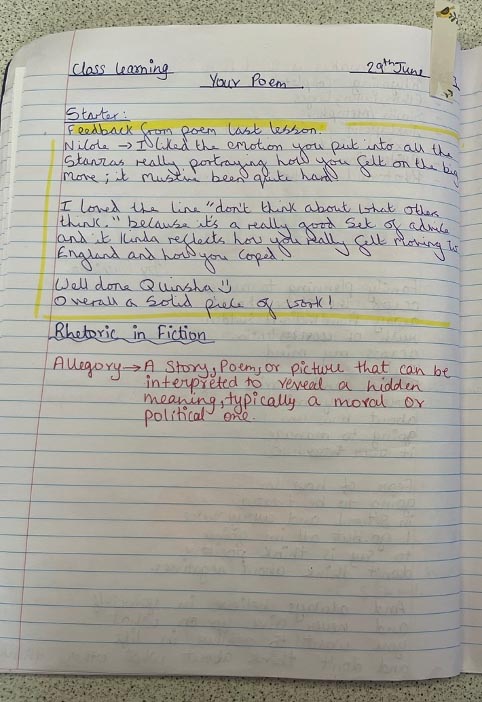 Class learning 29th June
Your Poem
Starter:
Feedback from poem last lesson.
Nicole → I liked the emotion you put into all the
stanzas really portraying how you felt on the big
move; it mustive been quite hard
I loved the line "don't think about what other
think." because it's a really good set of advice
and it kinda reflects how you really felt moving to
England and how you coped.
Well done Quinsha :)
Overall a solid piece of work!
Rhetoric in Fiction
Allegory → A Story, Poem, or picture that can be
interpreted to reveal a hidden
meaning, typically a moral or
political one.